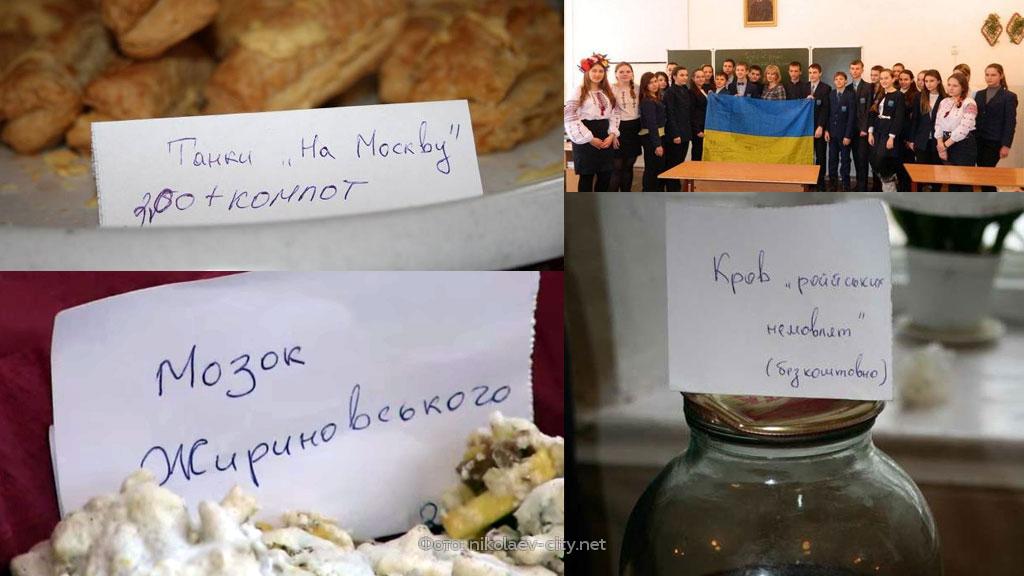 Танки „На Москву"
2,00 + компот
Мозок
Жириновського
Кров „російських
немовлят"
(безкоштовно)
Фото: nikolaev-city.net